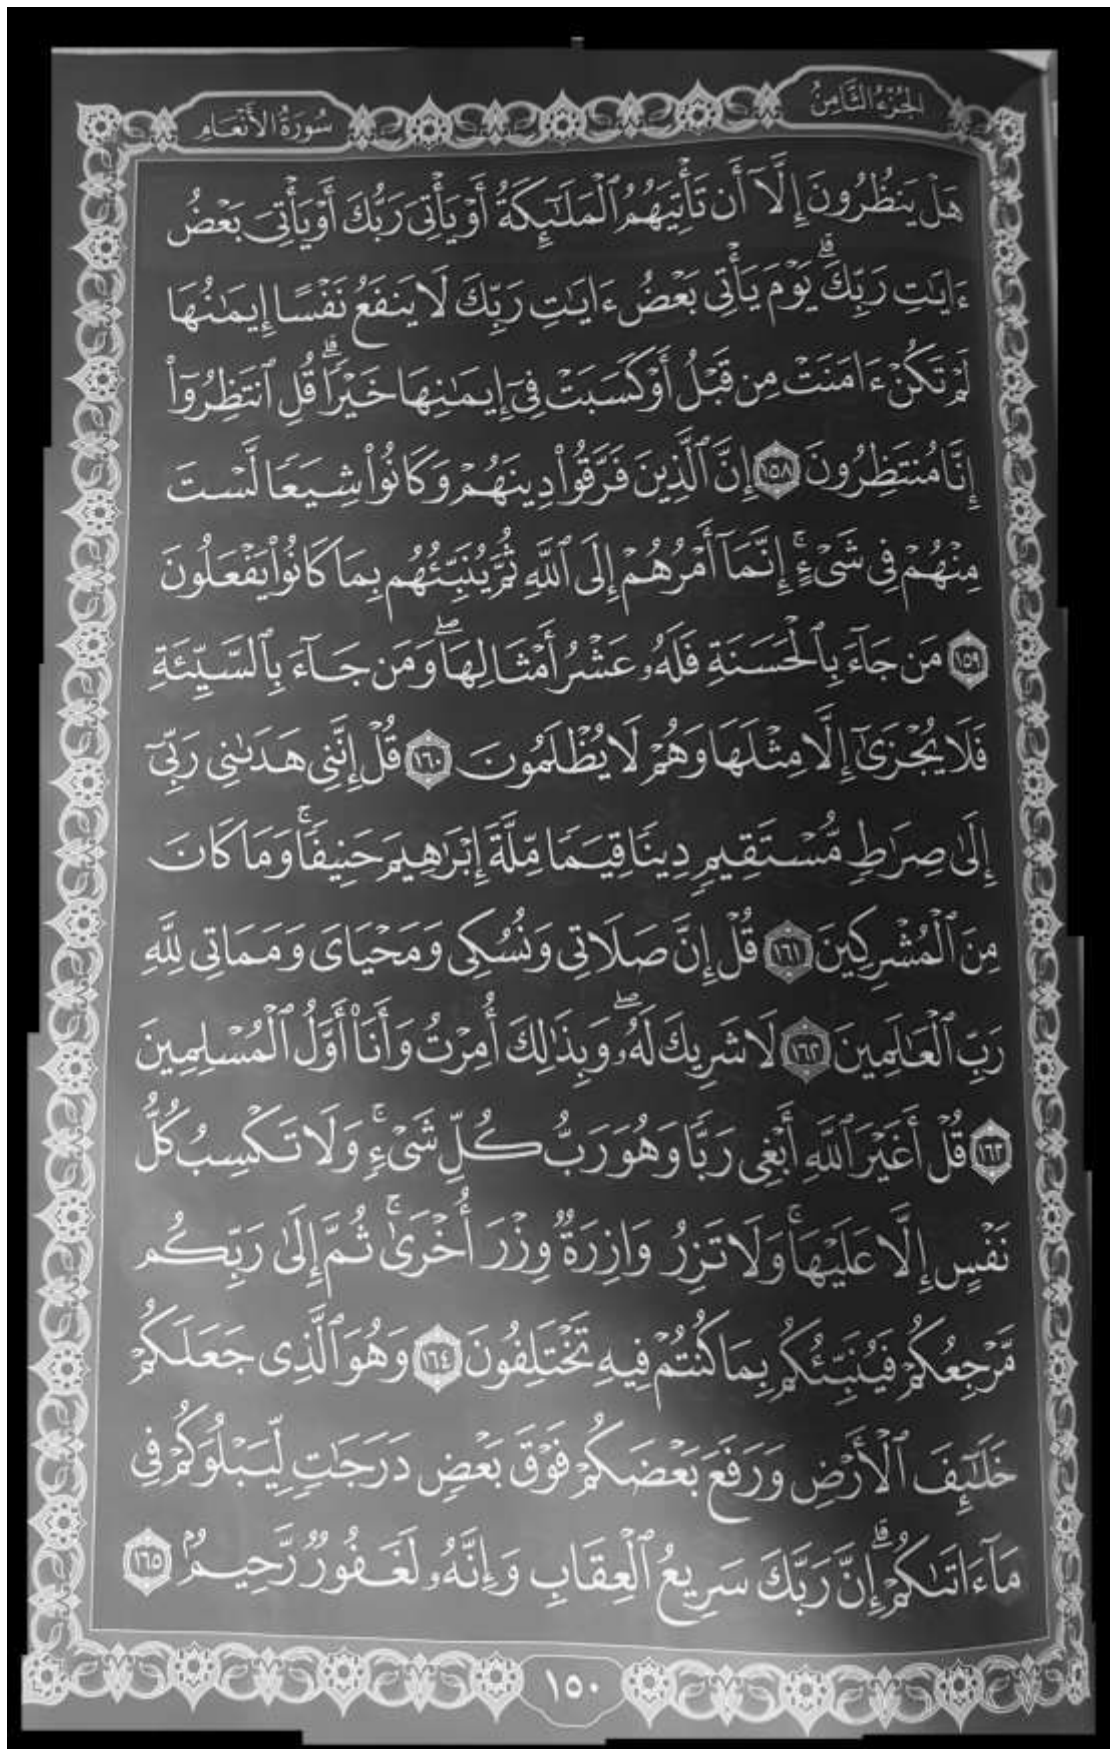 الجزء الثامن
سورة الأنعام
هَلْ يَنظُرُونَ إِلَّآ أَن تَأْتِيَهُمُ ٱلْمَلَٰٓئِكَةُ أَوْ يَأْتِىَ رَبُّكَ أَوْ يَأْتِىَ بَعْضُ
ءَايَٰتِ رَبِّكَ ۗ يَوْمَ يَأْتِى بَعْضُ ءَايَٰتِ رَبِّكَ لَا يَنفَعُ نَفْسًا إِيمَٰنُهَا
لَمْ تَكُنْ ءَامَنَتْ مِن قَبْلُ أَوْ كَسَبَتْ فِىٓ إِيمَٰنِهَا خَيْرًا ۗ قُلِ ٱنتَظِرُوٓا۟
إِنَّا مُنتَظِرُونَ ١٥٨ إِنَّ ٱلَّذِينَ فَرَّقُوا۟ دِينَهُمْ وَكَانُوا۟ شِيَعًا لَّسْتَ
مِنْهُمْ فِى شَىْءٍ ۚ إِنَّمَآ أَمْرُهُمْ إِلَى ٱللَّهِ ثُمَّ يُنَبِّئُهُم بِمَا كَانُوا۟ يَفْعَلُونَ
١٥٩ مَن جَآءَ بِٱلْحَسَنَةِ فَلَهُۥ عَشْرُ أَمْثَالِهَا ۖ وَمَن جَآءَ بِٱلسَّيِّئَةِ
فَلَا يُجْزَىٰٓ إِلَّا مِثْلَهَا وَهُمْ لَا يُظْلَمُونَ ١٦٠ قُلْ إِنَّنِى هَدَىٰنِى رَبِّىٓ
إِلَىٰ صِرَٰطٍ مُّسْتَقِيمٍ دِينًا قِيَمًا مِّلَّةَ إِبْرَٰهِيمَ حَنِيفًا ۚ وَمَا كَانَ
مِنَ ٱلْمُشْرِكِينَ ١٦١ قُلْ إِنَّ صَلَاتِى وَنُسُكِى وَمَحْيَاىَ وَمَمَاتِى لِلَّهِ
رَبِّ ٱلْعَٰلَمِينَ ١٦٢ لَا شَرِيكَ لَهُۥ ۖ وَبِذَٰلِكَ أُمِرْتُ وَأَنَا۠ أَوَّلُ ٱلْمُسْلِمِينَ
١٦٣ قُلْ أَغَيْرَ ٱللَّهِ أَبْغِى رَبًّا وَهُوَ رَبُّ كُلِّ شَىْءٍ ۚ وَلَا تَكْسِبُ كُلُّ
نَفْسٍ إِلَّا عَلَيْهَا ۚ وَلَا تَزِرُ وَازِرَةٌ وِزْرَ أُخْرَىٰ ۚ ثُمَّ إِلَىٰ رَبِّكُم
مَّرْجِعُكُمْ فَيُنَبِّئُكُم بِمَا كُنتُمْ فِيهِ تَخْتَلِفُونَ ١٦٤ وَهُوَ ٱلَّذِى جَعَلَكُمْ
خَلَٰٓئِفَ ٱلْأَرْضِ وَرَفَعَ بَعْضَكُمْ فَوْقَ بَعْضٍ دَرَجَٰتٍ لِّيَبْلُوَكُمْ فِى
مَآ ءَاتَىٰكُمْ ۗ إِنَّ رَبَّكَ سَرِيعُ ٱلْعِقَابِ وَإِنَّهُۥ لَغَفُورٌ رَّحِيمٌۢ ١٦٥
١٥٠